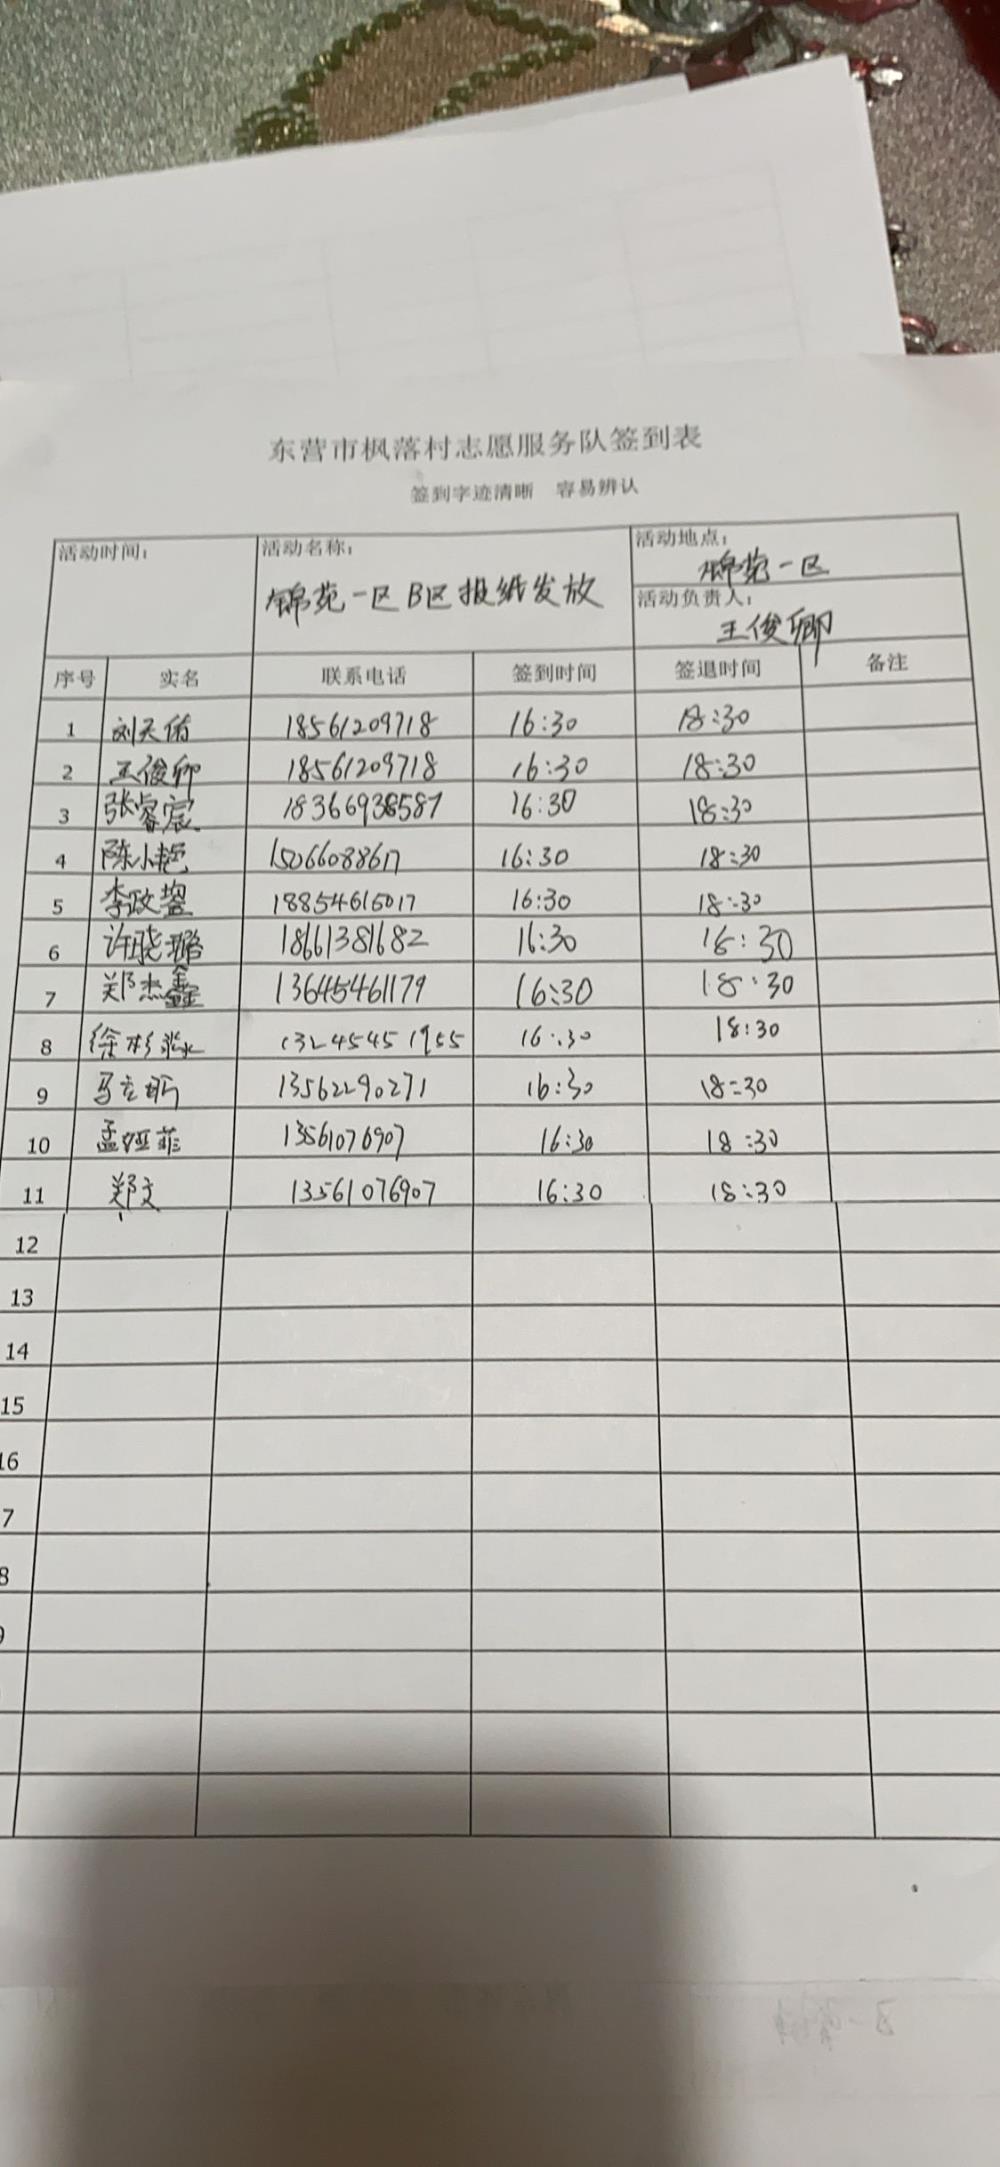 东营市枫落村志愿服务队签到表
签到字迹清晰 容易辨认
活动时间： 活动名称： 活动地点：
锦苑一区
锦苑一区B区报纸发放 活动负责人：
王俊卿
序号 实名 联系电话 签到时间 签退时间 备注
1 刘天佑 18561209718 16:30 18:30
2 王俊卿 18561209718 16:30 18:30
3 张睿宸 18366938587 16:30 18:30
4 陈小艳 15066088617 16:30 18:30
5 李政鋆 18854615017 16:30 18:30
6 许晓璐 18661381682 16:30 18:30
7 郑杰鑫 13645461179 16:30 18:30
8 徐杉淼 13245451955 16:30 18:30
9 马立昕 13562290271 16:30 18:30
10 孟娅菲 13561076907 16:30 18:30
11 郑文 13561076907 16:30 18:30
12
13
14
15
16
7
8